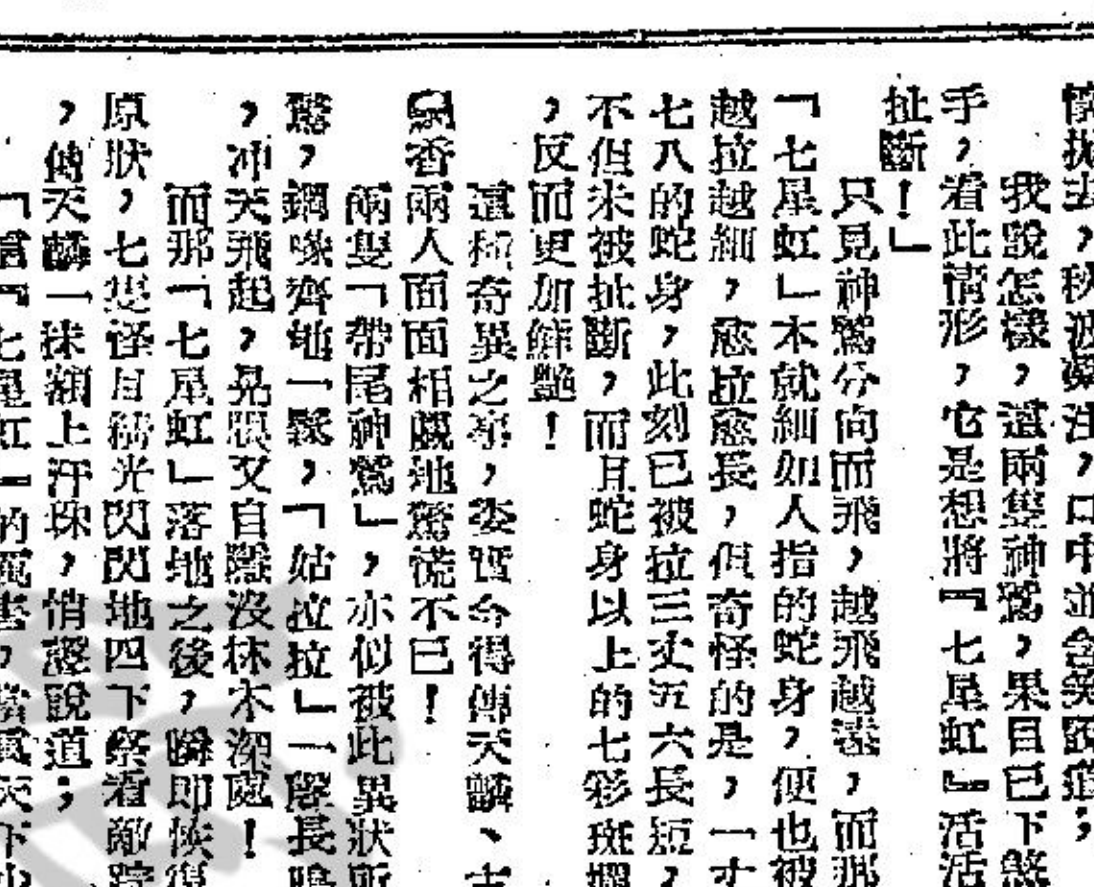 情拋去，秋波凝注，口中並含笑說道；
我說怎樣，這兩隻神鷲，果目已下煞
手，看此情形，它是想將『七星虹』活活
扯斷！」
只見神鷲分向而飛，越飛越遠，而那
「七星虹」本就細如人指的蛇身，便也被
越拉越細，愈拉愈長，但奇怪的是，一才
七八的蛇身，此刻已被拉三丈五六長短，
不但未被扯斷，而且蛇身以上的七彩斑斕
，反而更加鮮艷！
這種奇異之事，委實令得傅天麟、古
飄香兩人面面相覷地驚慌不已！
兩隻「帶尾神鷲」，亦似被此異狀所
驚，鋼喙齊地一鬆，「姑拉拉」一陣長鳴
，冲天飛起，晃眼又自隱沒林木深處！
而那「七星虹」落地之後，瞬即恢復
原狀，七隻怪目精光閃閃地四下察看敵踪
，傅天麟一抹額上汗珠，悄聲說道；
「這『七星虹』的厲害，當眞天下少